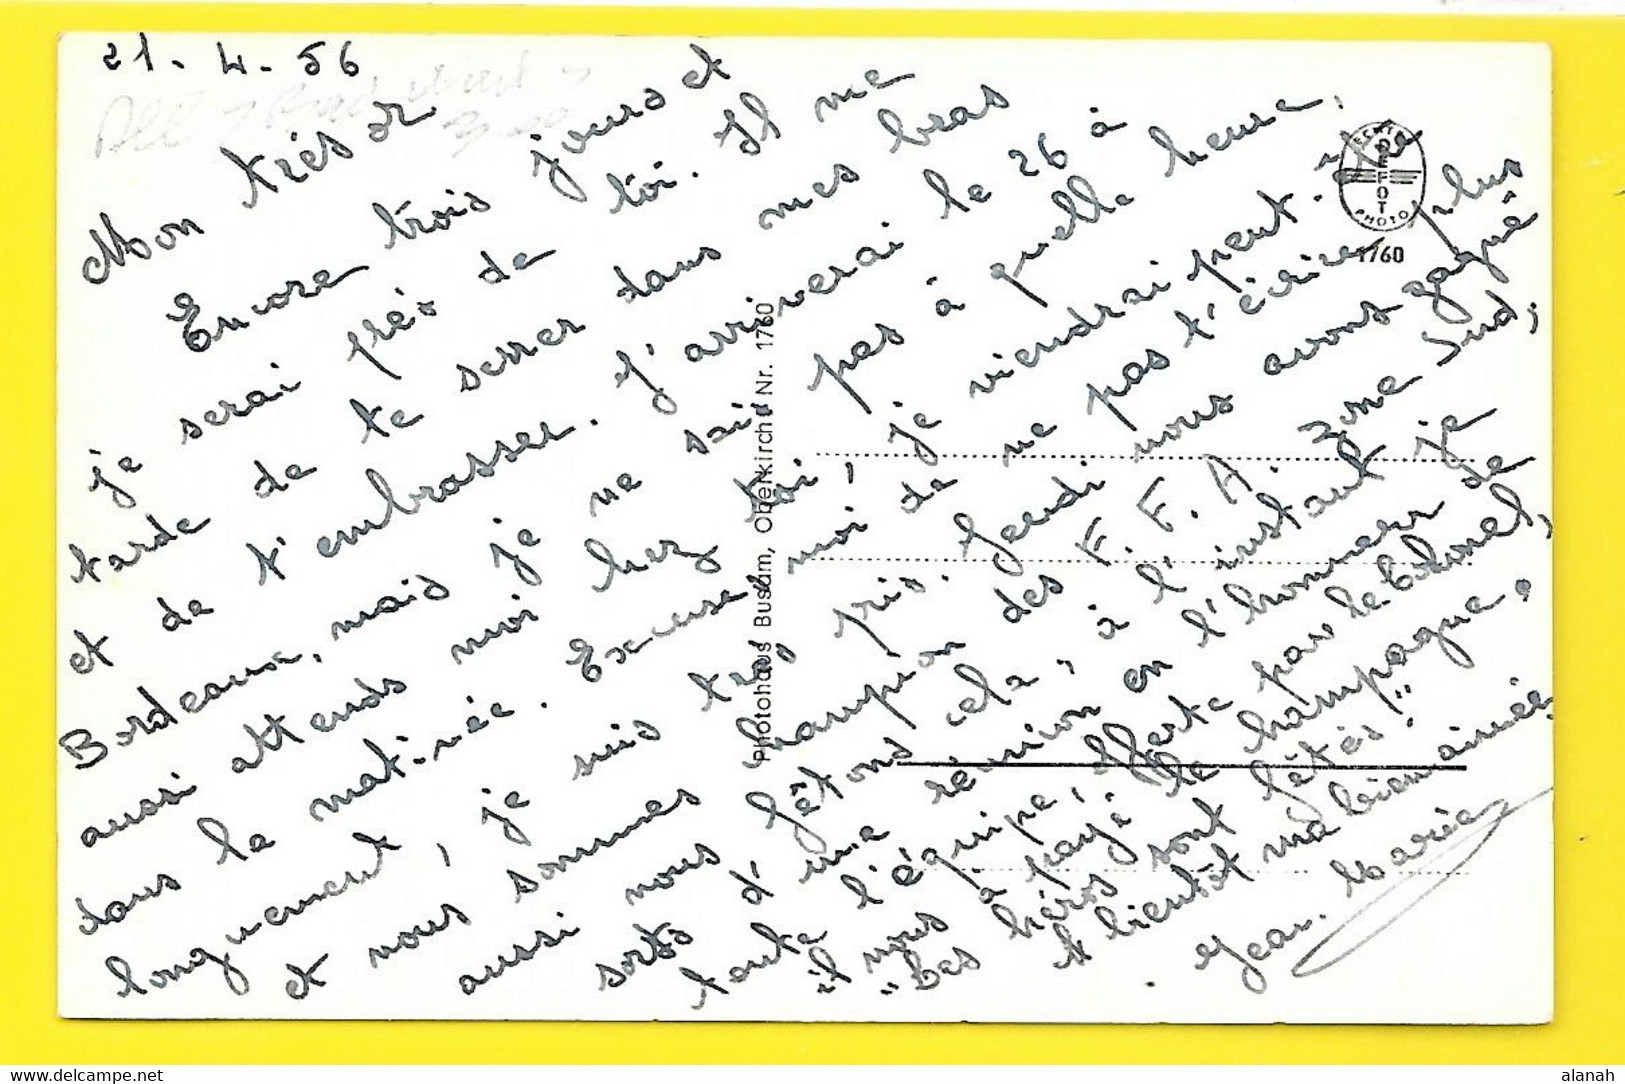 21 - 4 - 56
All
Mon trésor
Encore trois jours et
je serai près de toi. Il me
tarde de te serrer dans mes bras
et de t'embrasser. J'arriverai le 26 à
Bordeaux, mais je ne sais pas à quelle heure,
aussi attends moi chez toi, je viendrai peut-être
dans la matinée. Excuse moi de ne pas t'écrire plus
longuement, je suis très pris. Jeudi nous avons gagné
et nous sommes champion des F. F. A. zone Sud,
aussi nous fêtons cela, à l'instant je
sorts d'une réunion en l'honneur de
toute l'équipe, offerte par le Colonel,
il nous a payé le champagne.
"Les héros sont fêtés"
A bientôt ma bien aimée
Jean. Marie
ECHTE
DEFOT
PHOTO
1760
Photohaus Busam, Oberkirch · Nr. 1760
alanah